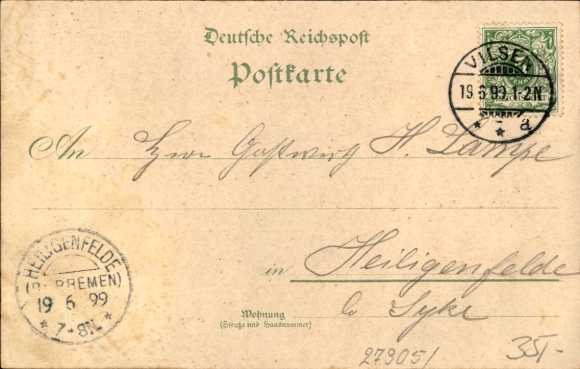 Deutsche Reichspost
Postkarte
VILSEN
19.6.99.1-2N.
a
An Herrn Gastwirt H. Lampe
HEILIGENFELDE
(BZ. BREMEN)
19 6 99
7-8N.
in Heiligenfelde
b. Syke
Wohnung
(Straße und Hausnummer)
27905/
35,-